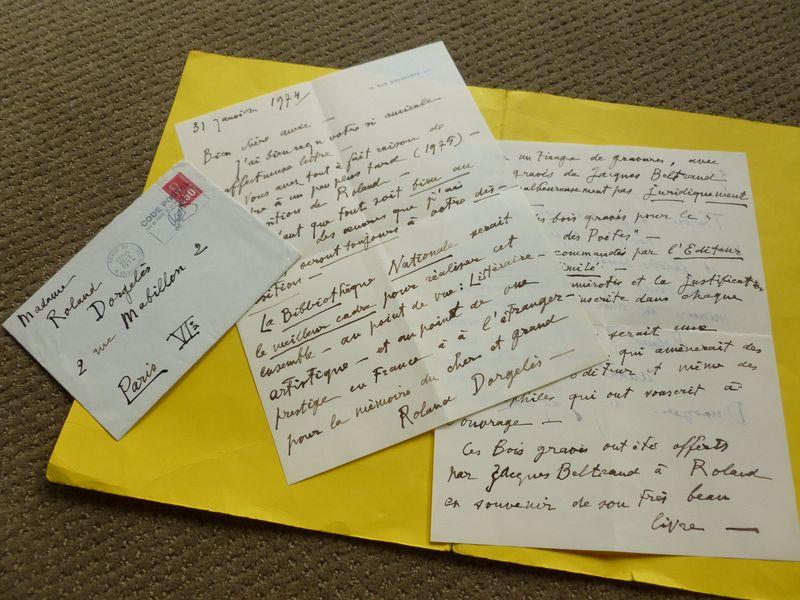 Madame
Roland
Dorgelès
2 rue Mabillon 2
Paris VIe
CODE POSTAL
31 Janvier 1974
Bien chère amie —
J'ai bien reçu votre si amicale
affectueuse lettre —
Vous avez tout à fait raison de
à un peu plus tard (1975) —
position de Roland —
faut que tout soit bien au
Les œuvres que j'ai
seront toujours à votre dis-
sition —
La Bibliothèque Nationale serait
le meilleur cadre pour réaliser cet
ensemble — au point de vue : Littéraire —
artistique — et au point de vue
prestige en France à à l'étranger —
pour la mémoire du cher et grand
Roland Dorgelès —
un tirage de gravures, avec
gravés de Jacques Beltrand
malheureusement pas juridiquement
bois gravés pour le :
des Poètes" —
commandés par l'Editeur
et la justification
inscrite dans chaque
serait une
qui amènerait des
éditeur et même des
philes qui ont souscrit à
l'ouvrage —
Ces Bois gravés ont été offerts
par Jacques Beltrand à Roland
en souvenir de son très beau
livre —